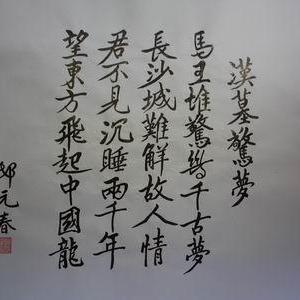 漢墓驚夢
馬王堆驚鴻千古夢
長沙城難解故人情
君不見沉睡兩千年
望東方飛起中國龍
鄧元春